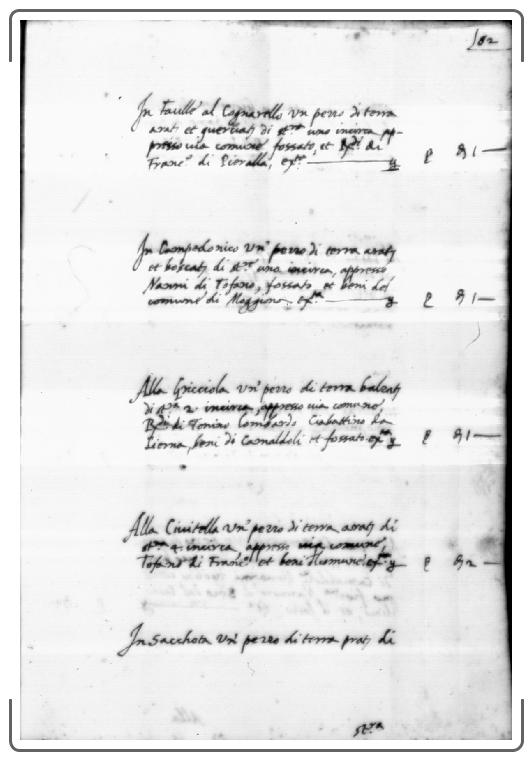 182
In Faulle al Cognarello un pezzo di terra
arat: et querciat: di st.ra uno incirca ap-
presso via comune, fossato, et B.di di
Franc.o di Pieralla, et.c
In Campedonico un pezzo di terra arat:
et boscat: di st.ra uno incirca, appresso
Nanni di Tofano, fossato, et beni del
comune di Moggiona, et.c
Alla Gricciola un pezzo di terra balzat:
di st.ra 2 incirca, appresso via comune,
B.di di Tonino Lombardo Ciabattino da
Lierna, beni di Camaldoli et fossato et.c
Alla Civitella un pezzo di terra arat: di
st.ra incirca appresso via comune,
Tofano di Franc.o et beni
In Sacchota un pezzo di terra prat: di
st.ra